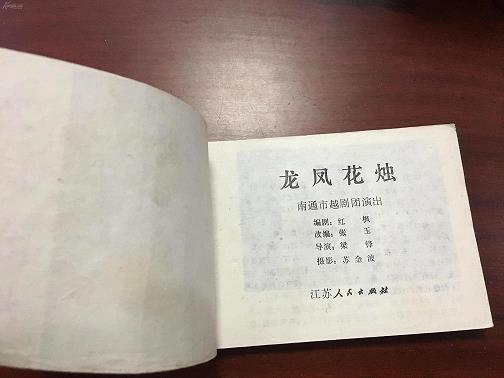 龙凤花烛
南通市越剧团演出
编剧：红枫
改编：张玉
导演：梁锋
摄影：苏金波
江苏人民出版社